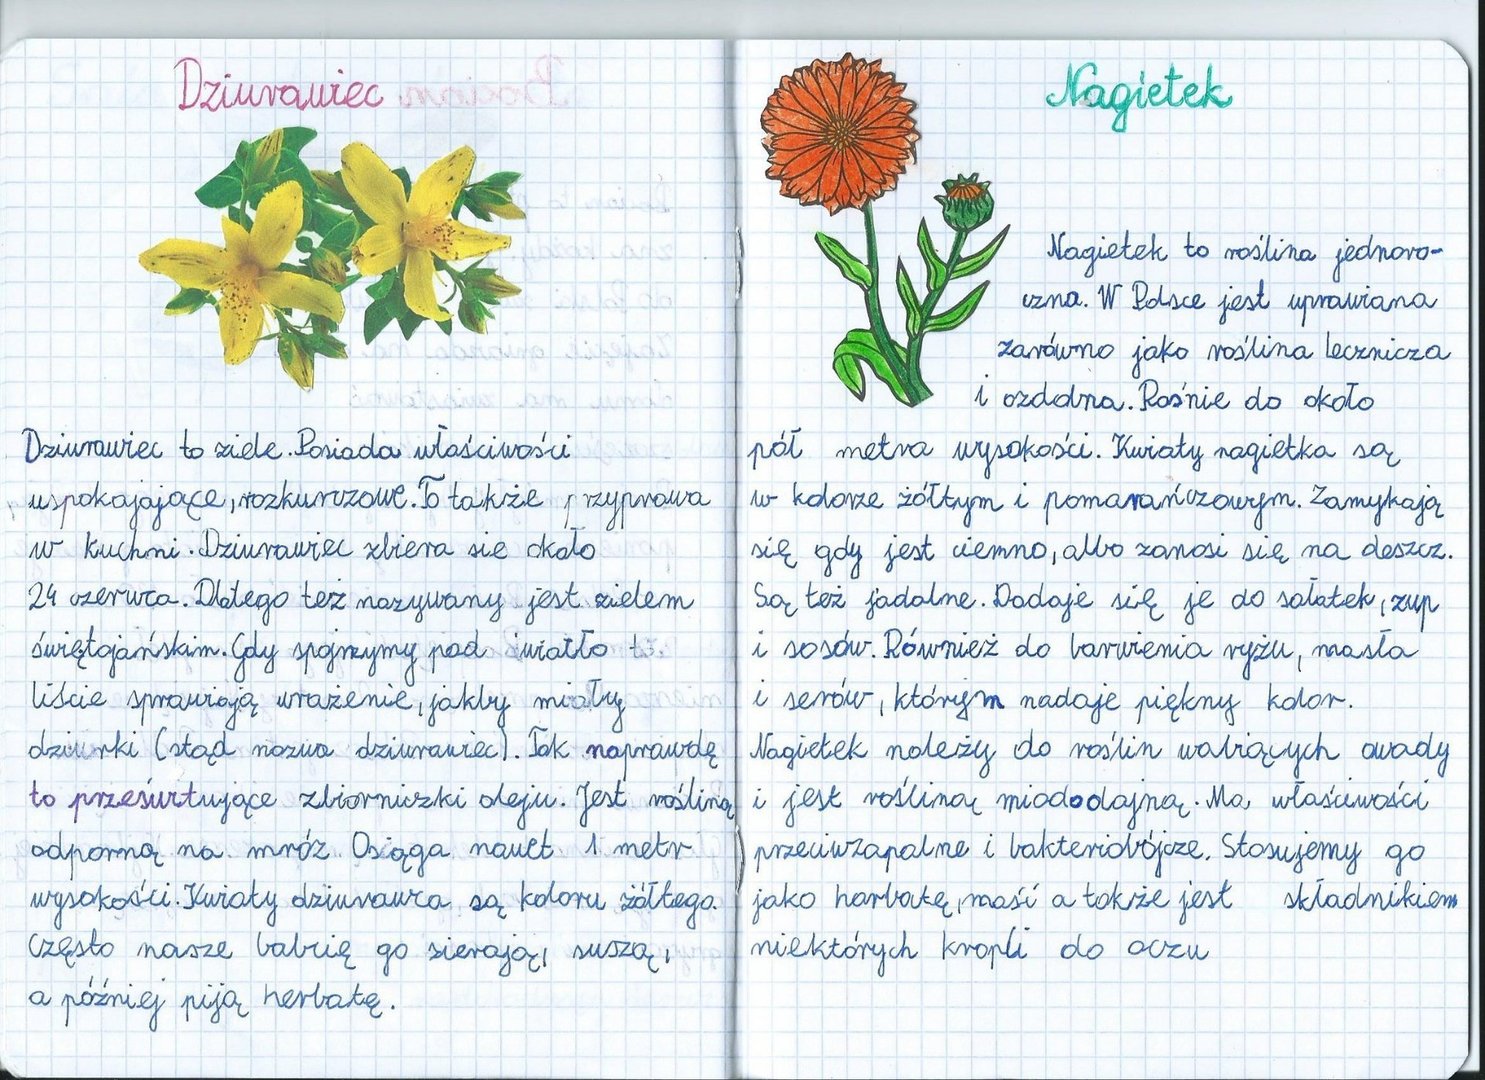 Dziurawiec
Dziurawiec to ziele. Posiada właściwości
uspokajające, rozkurczowe. To także przyprawa
w kuchni. Dziurawiec zbiera sie około
24 czerwca. Dlatego też nazywany jest zielem
świętojańskim. Gdy spojrzymy pod światło to
liście sprawiają wrażenie, jakby miały
dziurki (stąd nazwa dziurawiec). Tak naprawdę
to prześwitujące zbiorniczki oleju. Jest rośliną
odporną na mróz. Osiąga nawet 1 metr
wysokości. Kwiaty dziurawca są koloru żółtego.
Często nasze babcię go zierają, suszą,
a później piją herbatę.
Nagietek
Nagietek to roślina jednoro-
czna. W Polsce jest uprawiana
zarówno jako roślina lecznicza
i ozdobna. Rośnie do około
pół metra wysokości. Kwiaty nagietka są
w kolorze żółtym i pomarańczowym. Zamykają
się gdy jest ciemno, albo zanosi się na deszcz.
Są też jadalne. Dodaje się je do sałatek, zup
i sosów. Również do barwienia ryżu, masła
i serów, którym nadaje piękny kolor.
Nagietek należy do roślin wabiących owady
i jest rośliną miododajną. Ma właściwości
przeciwzapalne i bakteriobójcze. Stosujemy go
jako harbatę, maść a także jest składnikiem
niektórych kropli do oczu